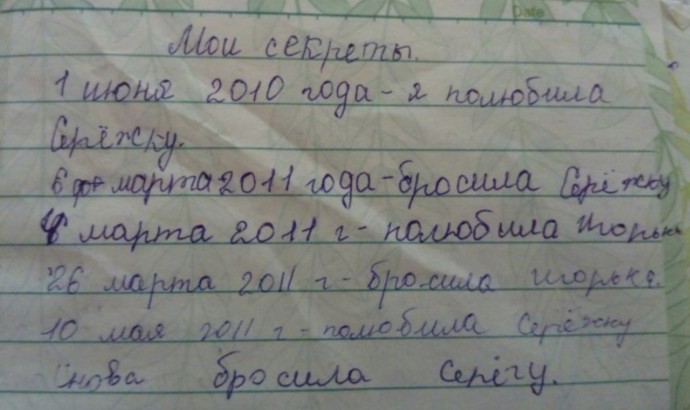 Date
Мои секреты.
1 июня 2010 года - я полюбила
Серёжку.
6 марта 2011 года - бросила Серёжку
8 марта 2011 г - полюбила Игорька
26 марта 2011 г - бросила Игорька.
10 мая 2011 г - полюбила Серёжку
Снова бросила Серёгу.